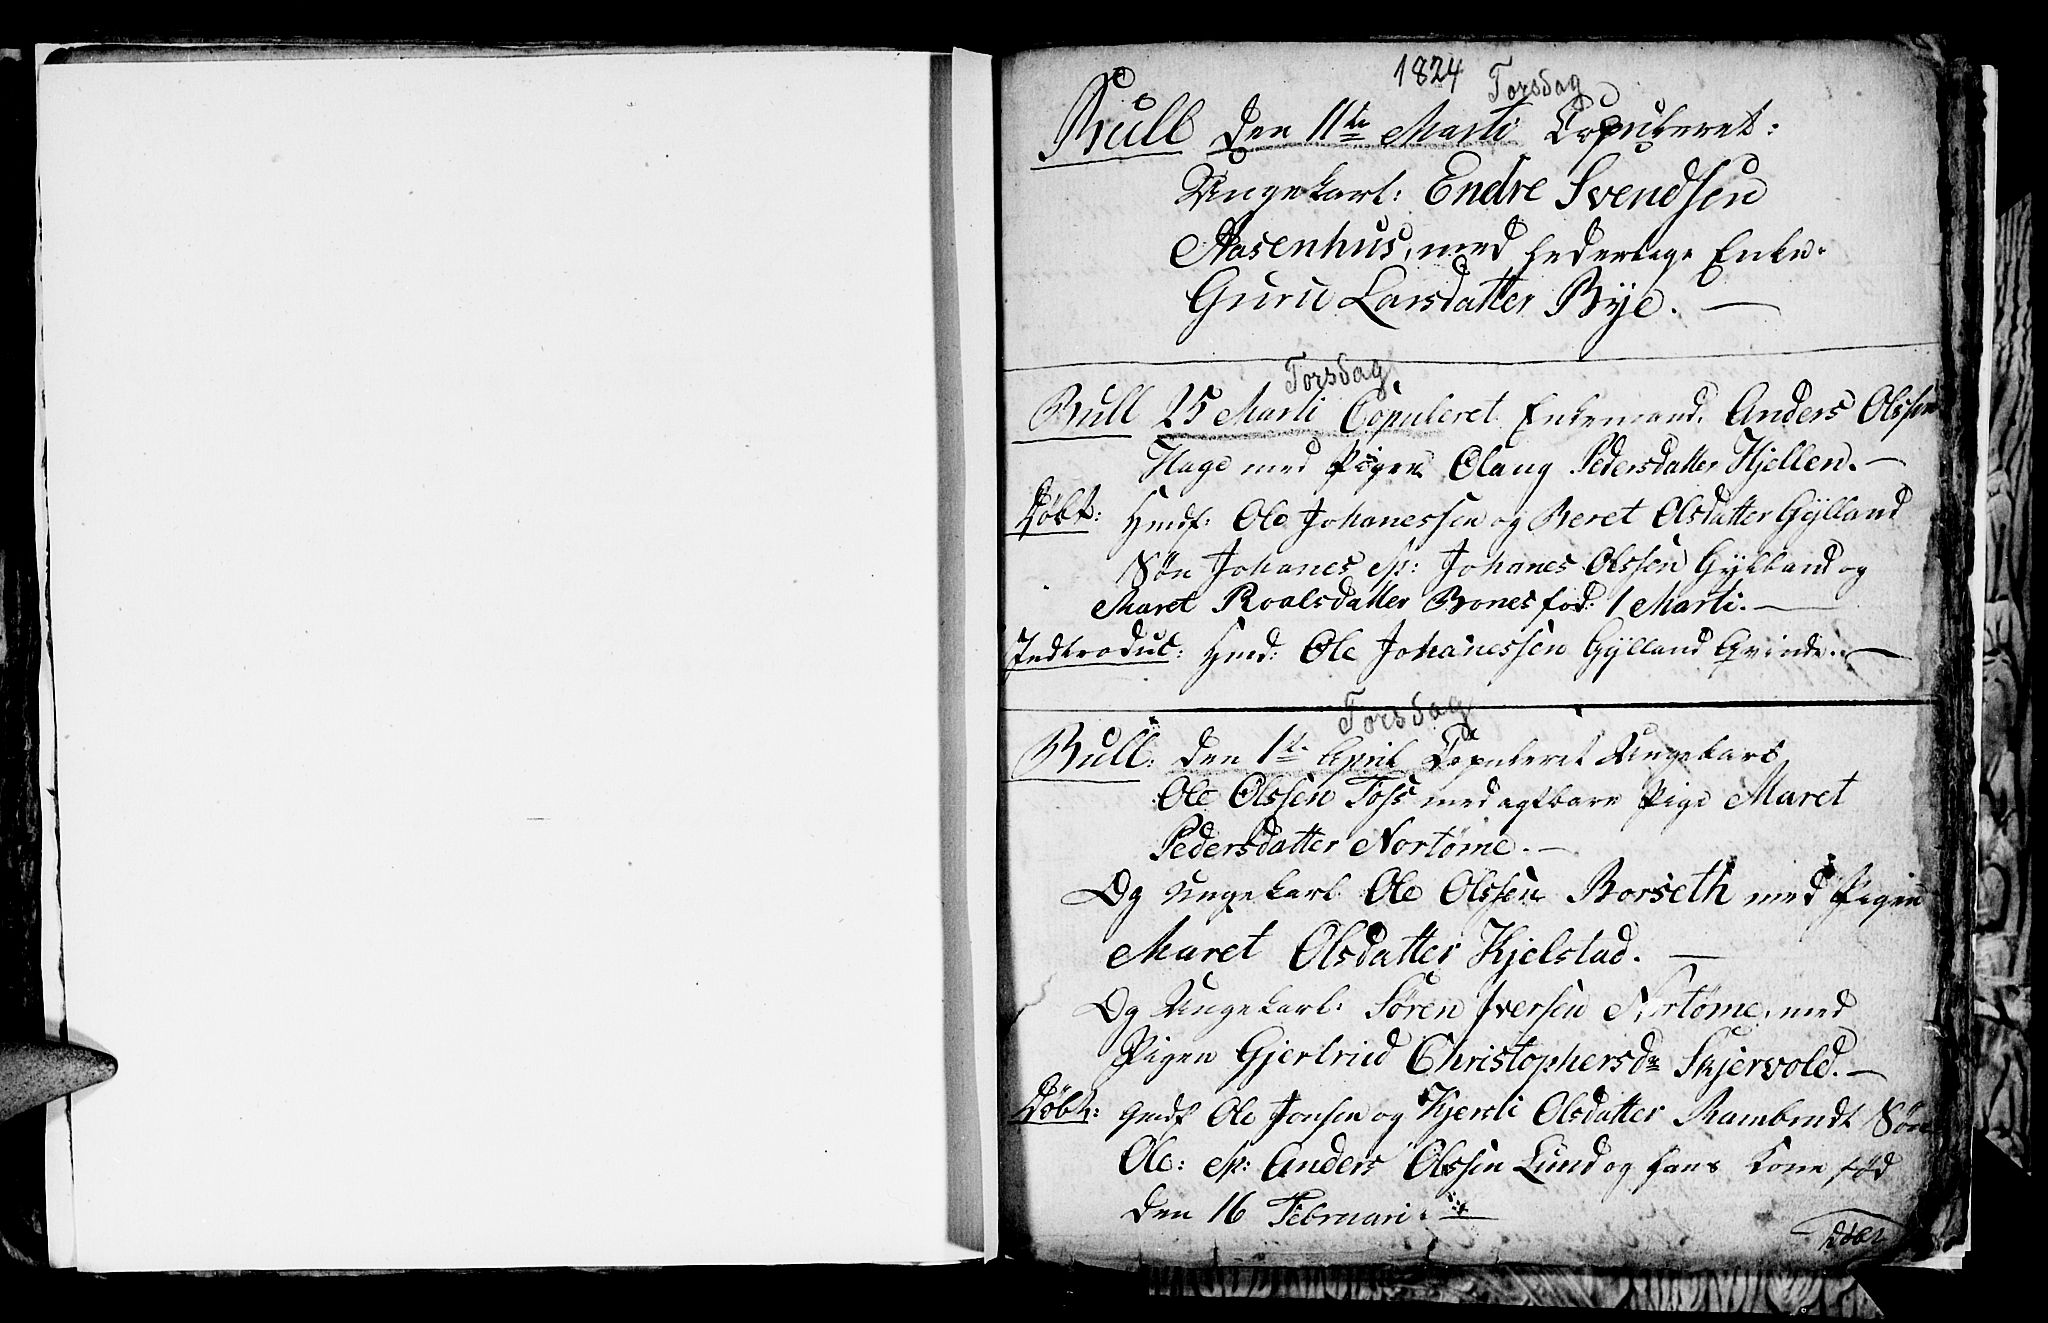 1824
Torsdag
Bull den 11te Marti Copuleret:
Ungekarl: Endre Svendsen
Aasenhus, med hederlige Enke.
Guru Larsdatter Bye. —
Torsdag
Bull 25 Marti Copuleret Enkemand. Anders Olssen
Hage med Pigen Olaug Pedersdatter Kjellen. —
Døbt: Hmdf: Ole Johanessen og Beret Olsdatter Gÿlland
Søn Johanes sp: Johanes Olssen Gÿlland og
Maret Roalsdatter Bones fød: 1 Marti. —
Indtroduc: Hmd: Ole Johanessen Gÿlland Qvinde. —
Torsdag
Bull: den 1te April Copuleret Ungekarl
Ole Olssen Foss med agtbare Pige Maret
Pedersdatter Nortøme. —
Og Ungekarl Ole Olssen Borseth med Pigen
Maret Olsdatter Kjelstad. —
Og Ungekarl: Søren Iversen Nortøme, med
Pigen Gjertrud Christophersdr Skjervold. —
Døbt: Gmdf Ole Jonsen og Kjersti Olsdatter Rambradt Søn
Ole: sp: Anders Olssen Lund og hans Kone fød
den 16 Februari. —
Døbt